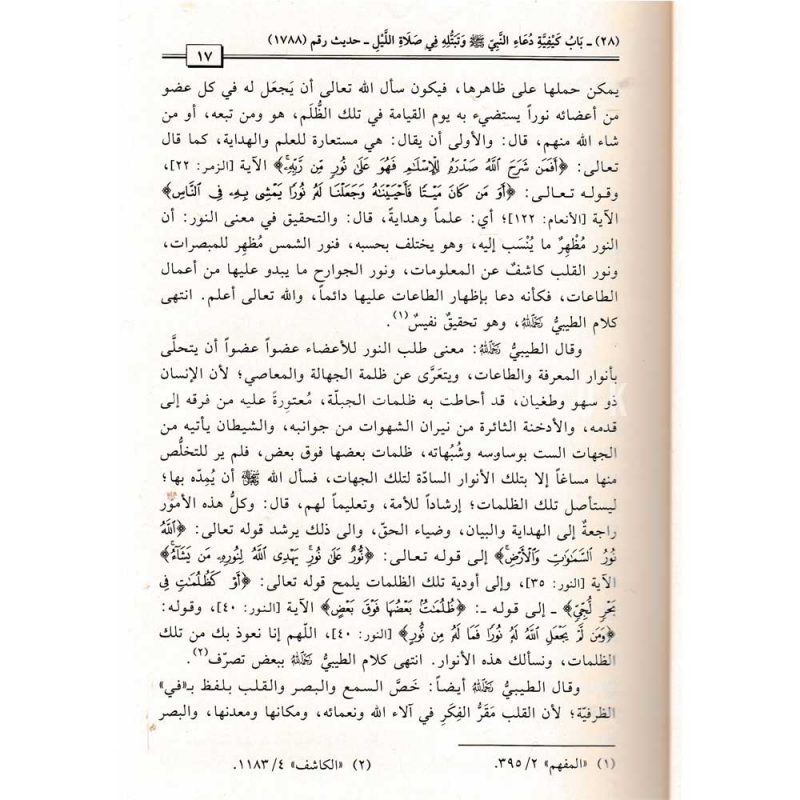 (٢٨) ـ بَابُ كَيْفِيَّةِ دُعَاءِ النَّبِيِّ ﷺ وَتَبَتُّلِهِ فِي صَلَاةِ اللَّيْلِ ـ حديث رقم (١٧٨٨)
١٧
يمكن حملها على ظاهرها، فيكون سأل الله تعالى أن يَجعَل له في كل عضو
من أعضائه نوراً يستضيء به يوم القيامة في تلك الظُّلَم، هو ومن تبعه، أو من
شاء الله منهم، قال: والأولى أن يقال: هي مستعارة للعلم والهداية، كما قال
تعالى: ﴿أَفَمَن شَرَحَ ٱللَّهُ صَدْرَهُۥ لِلْإِسْلَٰمِ فَهُوَ عَلَىٰ نُورٍ مِّن رَّبِّهِۦۚ﴾ الآية [الزمر: ٢٢]،
وقوله تعالى: ﴿أَوَ مَن كَانَ مَيْتًا فَأَحْيَيْنَٰهُ وَجَعَلْنَا لَهُۥ نُورًا يَمْشِى بِهِۦ فِى ٱلنَّاسِ﴾
الآية [الأنعام: ١٢٢]؛ أي: علماً وهدايةً، قال: والتحقيق في معنى النور: أن
النور مُظْهِرٌ ما يُنْسَب إليه، وهو يختلف بحسبه، فنور الشمس مُظهِر للمبصرات،
ونور القلب كاشفٌ عن المعلومات، ونور الجوارح ما يبدو عليها من أعمال
الطاعات، فكأنه دعا بإظهار الطاعات عليها دائماً، والله تعالى أعلم. انتهى
كلام الطيبيُّ رَحِمَهُ اللهُ، وهو تحقيقٌ نفيسٌ(١).
وقال الطيبيُّ رَحِمَهُ اللهُ: معنى طلب النور للأعضاء عضواً عضواً أن يتحلَّى
بأنوار المعرفة والطاعات، ويتعَرَّى عن ظلمة الجهالة والمعاصي؛ لأن الإنسان
ذو سهو وطغيان، قد أحاطت به ظلمات الجبلّة، مُعتوِرةً عليه من فرقه إلى
قدمه، والأدخنة الثائرة من نيران الشهوات من جوانبه، والشيطان يأتيه من
الجهات الست بوساوسه وشُبُهاته، ظلمات بعضها فوق بعض، فلم ير للتخلُّص
منها مساغاً إلا بتلك الأنوار السادّة لتلك الجهات، فسأل الله ﷺ أن يُمِدّه بها؛
ليستأصل تلك الظلمات؛ إرشاداً للأمة، وتعليماً لهم، قال: وكلُّ هذه الأمور
راجعةٌ إلى الهداية والبيان، وضياء الحقّ، والى ذلك يرشد قوله تعالى: ﴿ٱللَّهُ
نُورُ ٱلسَّمَٰوَٰتِ وَٱلْأَرْضِۚ﴾ إلى قوله تعالى: ﴿نُّورٌ عَلَىٰ نُورٍۚ يَهْدِى ٱللَّهُ لِنُورِهِۦ مَن يَشَآءُۚ﴾
الآية [النور: ٣٥]، وإلى أودية تلك الظلمات يلمح قوله تعالى: ﴿أَوْ كَظُلُمَٰتٍ فِى
بَحْرٍ لُّجِّىٍّ﴾ ـ إلى قوله ـ: ﴿ظُلُمَٰتٌۢ بَعْضُهَا فَوْقَ بَعْضٍ﴾ الآية [النور: ٤٠]، وقوله:
﴿وَمَن لَّمْ يَجْعَلِ ٱللَّهُ لَهُۥ نُورًا فَمَا لَهُۥ مِن نُّورٍ﴾ [النور: ٤٠]، اللَّهم إنا نعوذ بك من تلك
الظلمات، ونسألك هذه الأنوار. انتهى كلام الطيبيُّ رَحِمَهُ اللهُ ببعض تصرّف(٢).
وقال الطيبيُّ رَحِمَهُ اللهُ أيضاً: خَصَّ السمع والبصر والقلب بلفظ بـ«في»
الظرفيّة؛ لأن القلب مَقَرُّ الفِكَرِ في آلاء الله ونعمائه، ومكانها ومعدنها، والبصر
(١) «المفهم» ٢/ ٣٩٥. (٢) «الكاشف» ٤/ ١١٨٣.